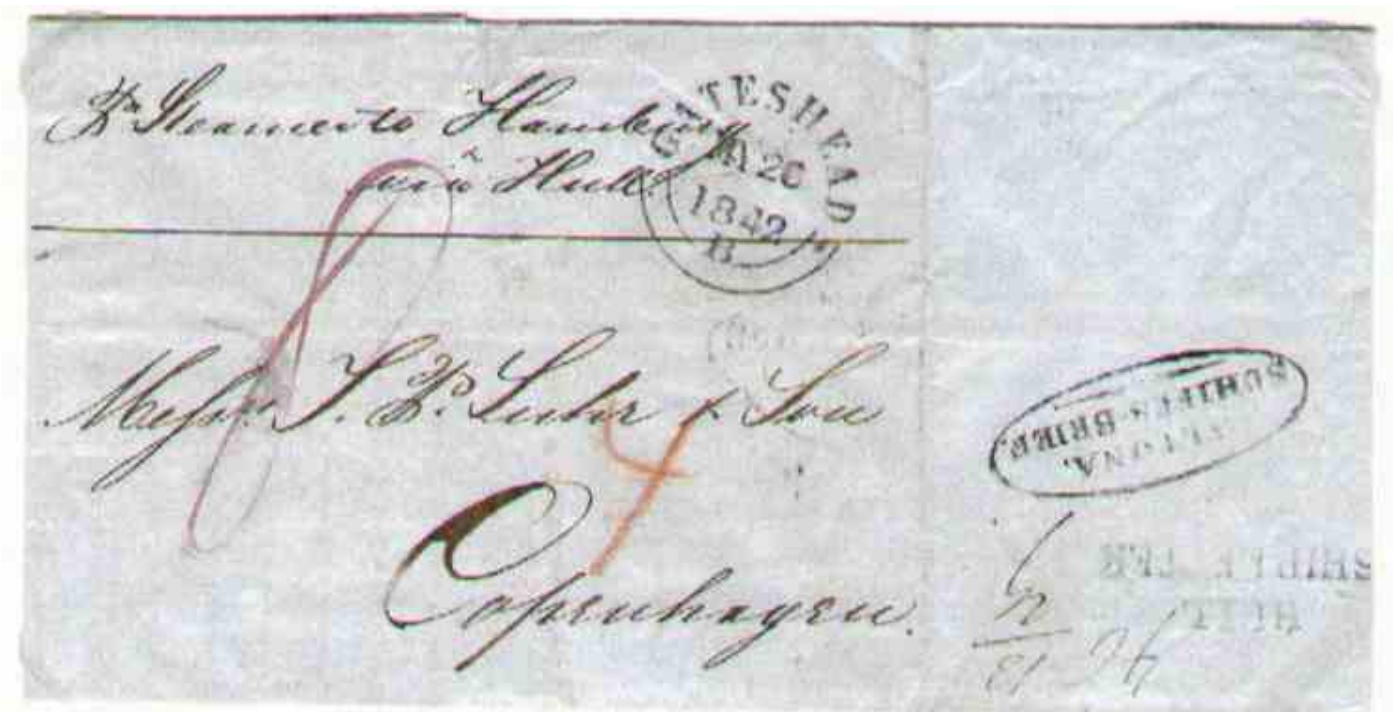 Pr Steamer to Hamburg
via Hull
GATESHEAD
1842
B
8
Messrs. S. & Son
4
Copenhagen.
ALTONA.
SCHIFFS-BRIEF.
SHIP LETTER
HULL